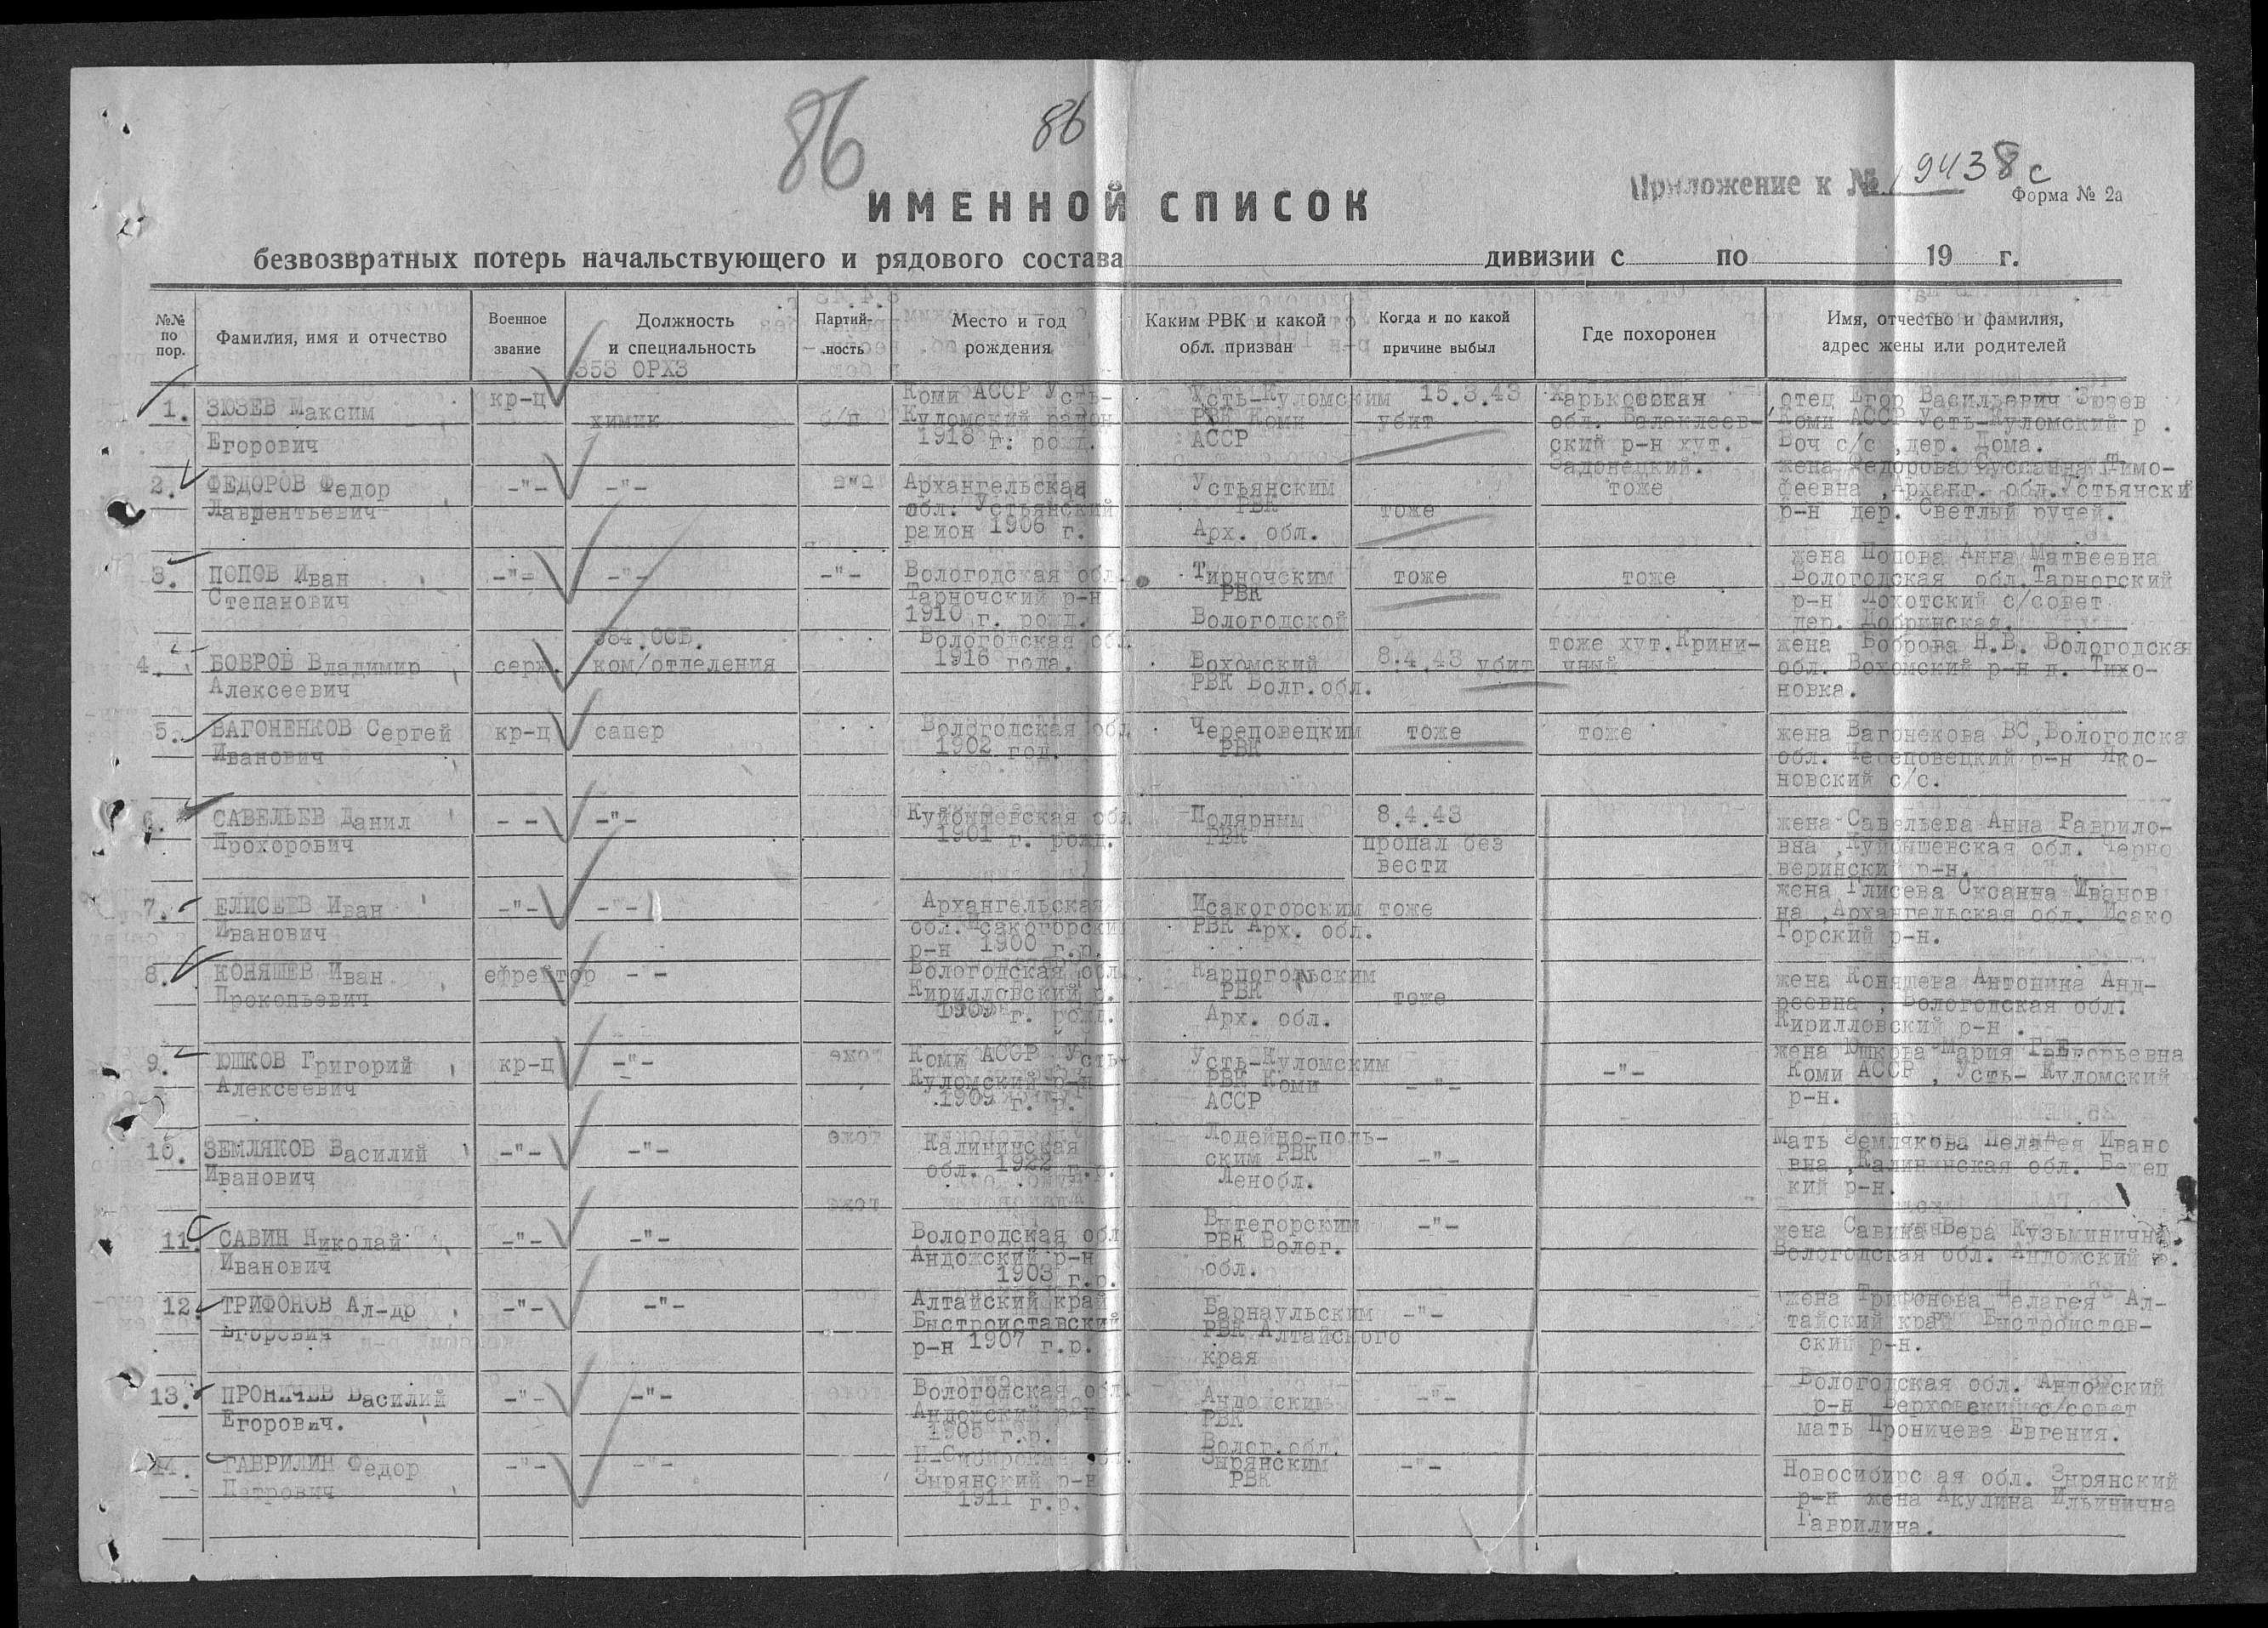 86
86
Приложение к № 19438с
Форма № 2а
ИМЕННОЙ СПИСОК
безвозвратных потерь начальствующего и рядового состава дивизии с по 19 г.
№№ по пор.
Фамилия, имя и отчество
Военное звание
Должность и специальность
Партийность
Место и год рождения
Каким РВК и какой обл. призван
Когда и по какой причине выбыл
Где похоронен
Имя, отчество и фамилия, адрес жены или родителей
353 ОРХЗ
1. ЗЮЗЕВ Максим кр-ц химик б/п Коми АССР Усть- Усть-Куломским 15.3.43 Харьковская отец Егор Васильевич Зюзев
Егорович Куломский район РВК Коми убит обл. Балаклеев- Коми АССР Усть-Куломский р.
1918 г. рожд. АССР ский р-н хут. Воч с/с, дер. Дома.
Задонецкий.
2. ФЕДОРОВ Федор -"- -"- -"- Архангельская Устьянским тоже тоже жена Федорова Суссанна Тимо-
Лаврентьевич обл. Устьянский РВК феевна, Арханг. обл. Устьянски
район 1906 г. Арх. обл. р-н дер. Светлый ручей.
3. ПОПОВ Иван -"- -"- -"- Вологодская обл. Тирночским тоже тоже жена Попова Анна Матвеевна
Степанович Тарночский р-н РВК Вологодская обл. Тарногский
1910 г. рожд. Вологодской р-н Лохотский с/совет
дер. Добринская.
384 ОСБ.
4. БОБРОВ Владимир серж. ком/отделения Вологодская обл. Вохомский 8.4.43 убит тоже хут. Крини- жена Боброва Н.В. Вологодская
Алексеевич 1916 года. РВК Волг.обл. чный обл. Вохомский р-н д. Тихо-
новка.
5. ВАГОНЕНКОВ Сергей кр-ц сапер Вологодская обл Череповецким тоже тоже жена Вагонекова ВС, Вологодска
Иванович 1902 год. РВК обл. Череповецкий р-н Яко-
новский с/с.
6. САВЕЛЬЕВ Данил - - -"- Куйбышевская обл Полярным 8.4.43 жена Савельева Анна Гаврило-
Прохорович 1901 г. рожд. РВК пропал без вна, Куйбышевская обл. Черно
вести веринский р-н.
7. ЕЛИСЕЕВ Иван -"- -"- Архангельская Исакогорским тоже жена Глисева Оксанна Иванов
Иванович обл. Исакогорский РВК Арх. обл. на, Архангельская обл. Исако
р-н 1900 г.р. Горский р-н.
8. КОНЯШЕВ Иван ефрейтор -"- Вологодская обл. Каргопольским тоже жена Коняшева Антонина Анд-
Прокопьевич Кирилловский р. РВК реевна, Вологодская обл.
1909 г. рожд. Арх. обл. Кирилловский р-н.
9. ЮШКОВ Григорий кр-ц -"- Коми АССР Усть- Усть-Куломским -"- -"- жена Юшкова Мария Григорьевна
Алексеевич Куломский р-н РВК Коми Коми АССР, Усть-Куломский
1909 г. р. АССР р-н.
10. ЗЕМЛЯКОВ Василий -"- -"- Калининская Лодейно-поль- -"- Мать Землякова Пелагея Ивано
Иванович обл. 1922 г.р. ским РВК вна, Калининская обл. Бежец
Ленобл. кий р-н.
11. САВИН Николай -"- -"- Вологодская обл Вытегорским -"- жена Савина Вера Кузьминична
Иванович Андожский р-н РВК Волог. Вологодская обл. Андожский р.
1903 г.р. обл.
12. ТРИФОНОВ Ал-др -"- -"- Алтайский край Барнаульским -"- жена Трифонова Пелагея Ал-
Егорович Быстроиставский РВК Алтайского тайский край Быстроистов-
р-н 1907 г.р. края ский р-н.
13. ПРОНИЧЕВ Василий -"- -"- Вологодская обл. Андожским -"- Вологодская обл. Андожский
Егорович. Андожский р-н РВК р-н Верховский с/совет
1905 г.р. Волог.обл. мать Проничева Евгения.
14. ГАВРИЛИН Федор -"- -"- Н-Сибирская обл. Зырянским -"- Новосибирс ая обл. Зырянский
Петрович Зырянский р-н РВК р-н жена Акулина Ильинична
1911 г.р. Гаврилина.